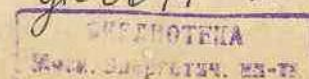 БИБЛИОТЕКА
Моск. Энергетич. ин-та